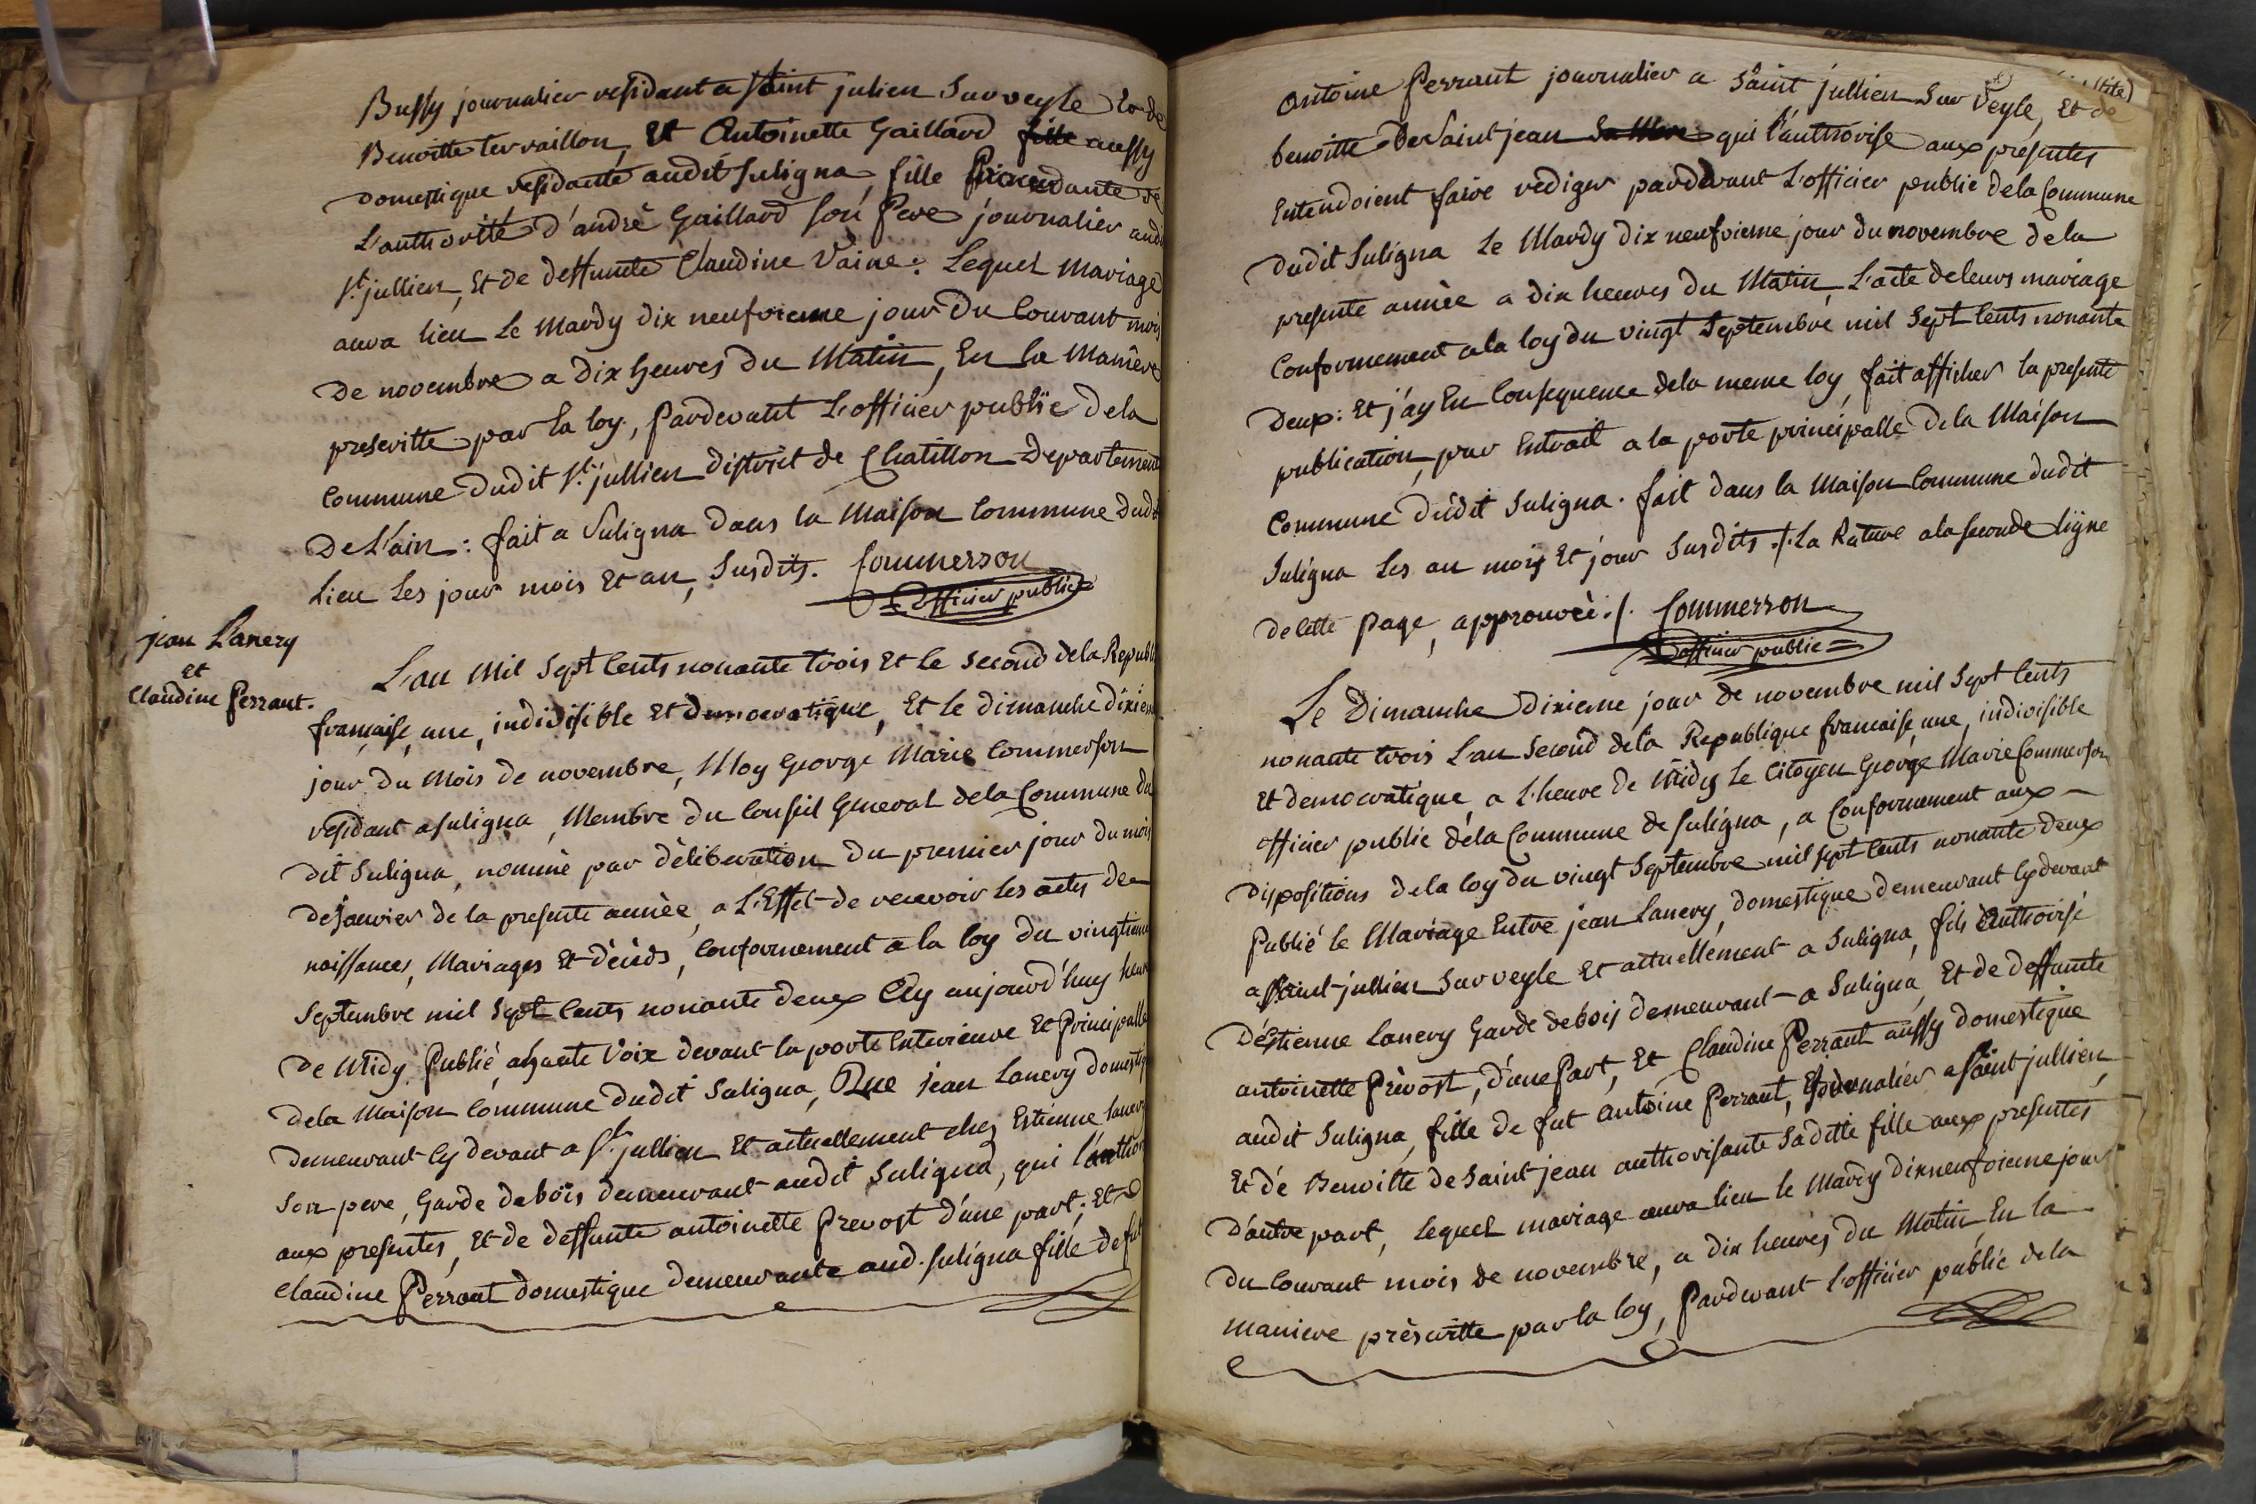 Bussy journalier residant a Saint julien Sur veyle Et de
Benoitte tervaillon, Et Antoinette Gaillard fille aussy
domestique residante audit Suligna, fille de
L'authorité d'andrè Gaillard son Pere journalier aud
St. jullien, Et de deffunte Claudine Vaine: Lequel Mariage
aura lieu Le Mardy dix neufvieme jour du Courant mois
de novembre a dix heures du Matin, En la Maniere
prescritte par la loy, Pardevant L'officier publïc dela
Commune dudit St. jullien district de Chatillon Departement
De L'ain: fait a Suligna dans la Maison Commune dudit
lieu Les jour mois Et an, Susdits. Commerson
Officier public
jean Lanery
Et
Claudine Perraut.
L'an Mil Sept Cents nonante trois Et Le Second dela Republ
française, une, indivisible Et democratique, Et le dimanche dixiem
jour du Mois de novembre, Moy George Marie Commerson
residant a Suligna, Membre du Conseil General dela Commune du
dit Suligna, nommè par dèliberation du premier jour du mois
de Janvier de la presente annèe, a L'Effet de recevoir les actes de
naissances, Mariages Et dècèds, Conformement a la loy du vingtieme
Septembre mil Sept Cents nonante deux Ay aujourd'huy heure
De Midy Publiè, ahaute Voix devant la porte Exterieure Et Principalle
dela Maison Commune dudit Suligna, Que jean Lanery domestiq
demeurant cy devant a St. jullien Et actuellement chez Estienne Lanery
Son pere, Garde debois demeurant audit Suligna, qui l'author
aux presentes, Et de deffunte antoinette Prevost d'une part; Et d
Claudine Perraut domestique demeurante aud. Suligna fille de fut
Antoine Perraut journalier a Saint jullien Sur Veyle, Et de
benoitte De Saint jean Sa Mere qui l'authorise aux presentes
Entendoient faire rediger pardevant L'officier public dela Commune
dudit Suligna Le Mardy dix neufvieme jour du novembre dela
presente annèe a dix heures du Matin, L'acte deleurs mariage
Conformement ala loy du vingt Septembre mil Sept Cents nonante
Deux: Et j'ay En Consequence dela meme loy, fait afficher la presente
publication, par Extrait a la porte principalle dela Maison
Commune dudit Suligna. fait dans la Maison Commune dudit
Suligna Les an mois Et jour Susdits ./. La Rature ala seconde ligne
de Cette Page, approuvèe ./. Commerson
officier public
Le Dimanche dixieme jour de novembre mil Sept Cents
nonante trois L'an Second dela Republique francaise, une, indivisible
Et democratique, a L'heure de Midy Le Citoyen George Marie Commerson
officier public dela Commune de Suligna, a Conformement aux
dispositions dela loy du vingt Septembre mil sept Cents nonante deux
Publié le Mariage Entre jean Lanery, domestique demeurant Cydevant
a Saint jullien Sur veyle Et actuellement a Suligna, fils authorisé
d'Estienne Lanery Garde debois demeurant a Suligna, Et de deffunte
antoinette Prèvost, d'une Part, Et Claudine Perraut aussy domestique
audit Suligna, fille de fut antoine Perraut, journalier a Saint jullien,
Et dé Benoitte de Saint jean authorisante Saditte fille aux presentes
d'autre part, Lequel mariage aura lieu le Mardy dixneufvieme jour
du Courant mois de novembre, a dix heures du Matin, En la
maniere prèscritte par la loy, Pardevant L'officier public dela